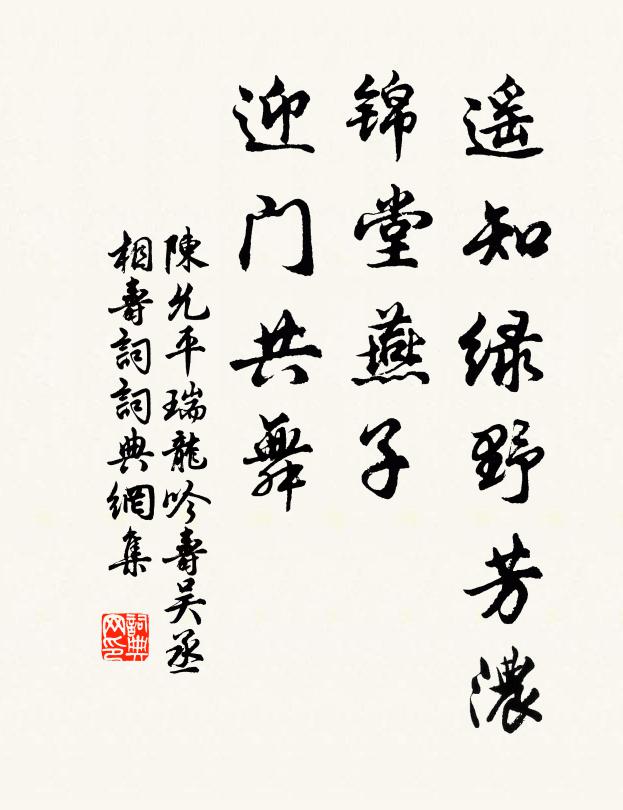 遥知绿野芳濃
锦堂燕子
迎门共舞
陳允平瑞龍吟壽吴丞
相壽詞詞典網集
詞典网印